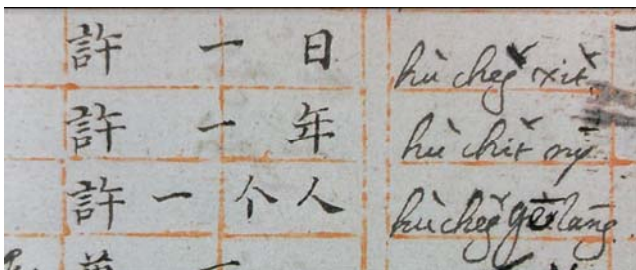 許 一 日 hù cheg̃ xit
許 一 年 hù chit ny
許 一 个 人 hù cheg̃ gèi lang